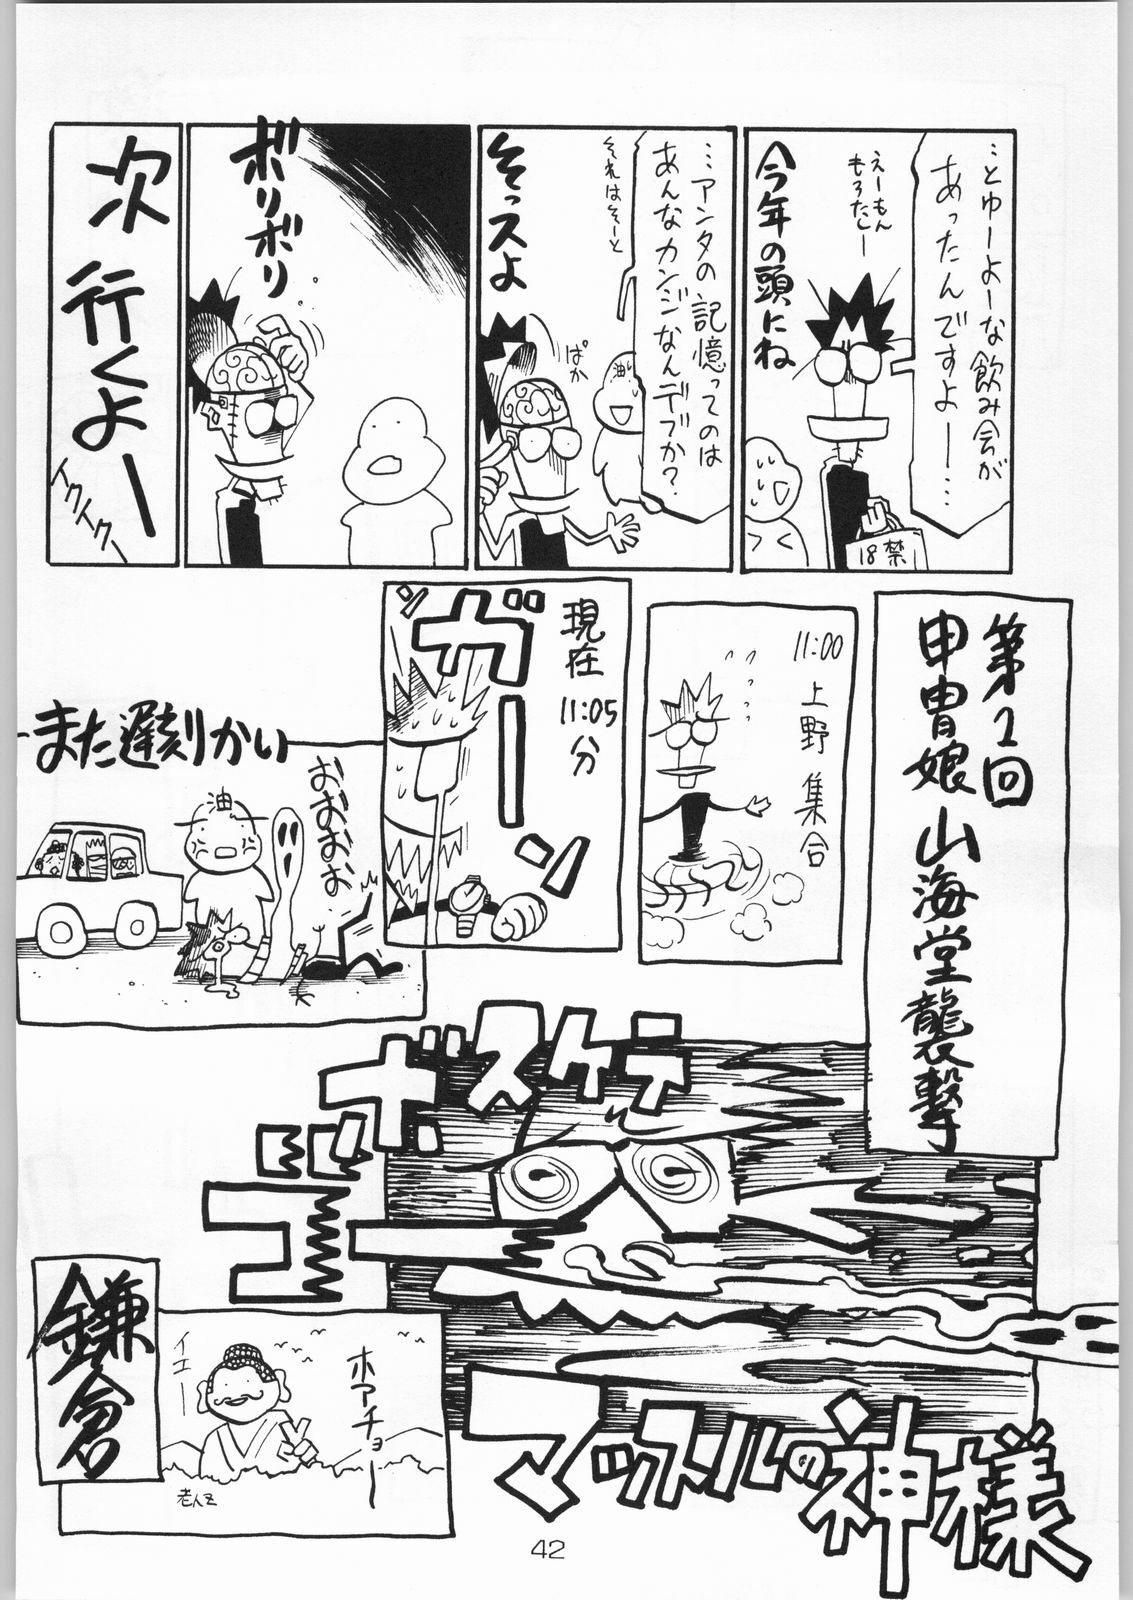 …とゆーよーな飲み会が
あったんですよー…
えーもん
もろたしー
今年の頭にね
18禁
…アンタの記憶ってのは
あんなカンジなんデスか?
それはそーと
そっスよ
ぱか
油
ボリボリ
次行くよー
イクイクー
第2回
甲冑娘山海堂襲撃
11:00
上野集合
現在
11:05分
ガーーン
また遅刻かい
油
おおおお
ボスケテ
ゴゴゴー
マッスルの神様
鎌倉
イエー
ホアチョー
老人Z
42